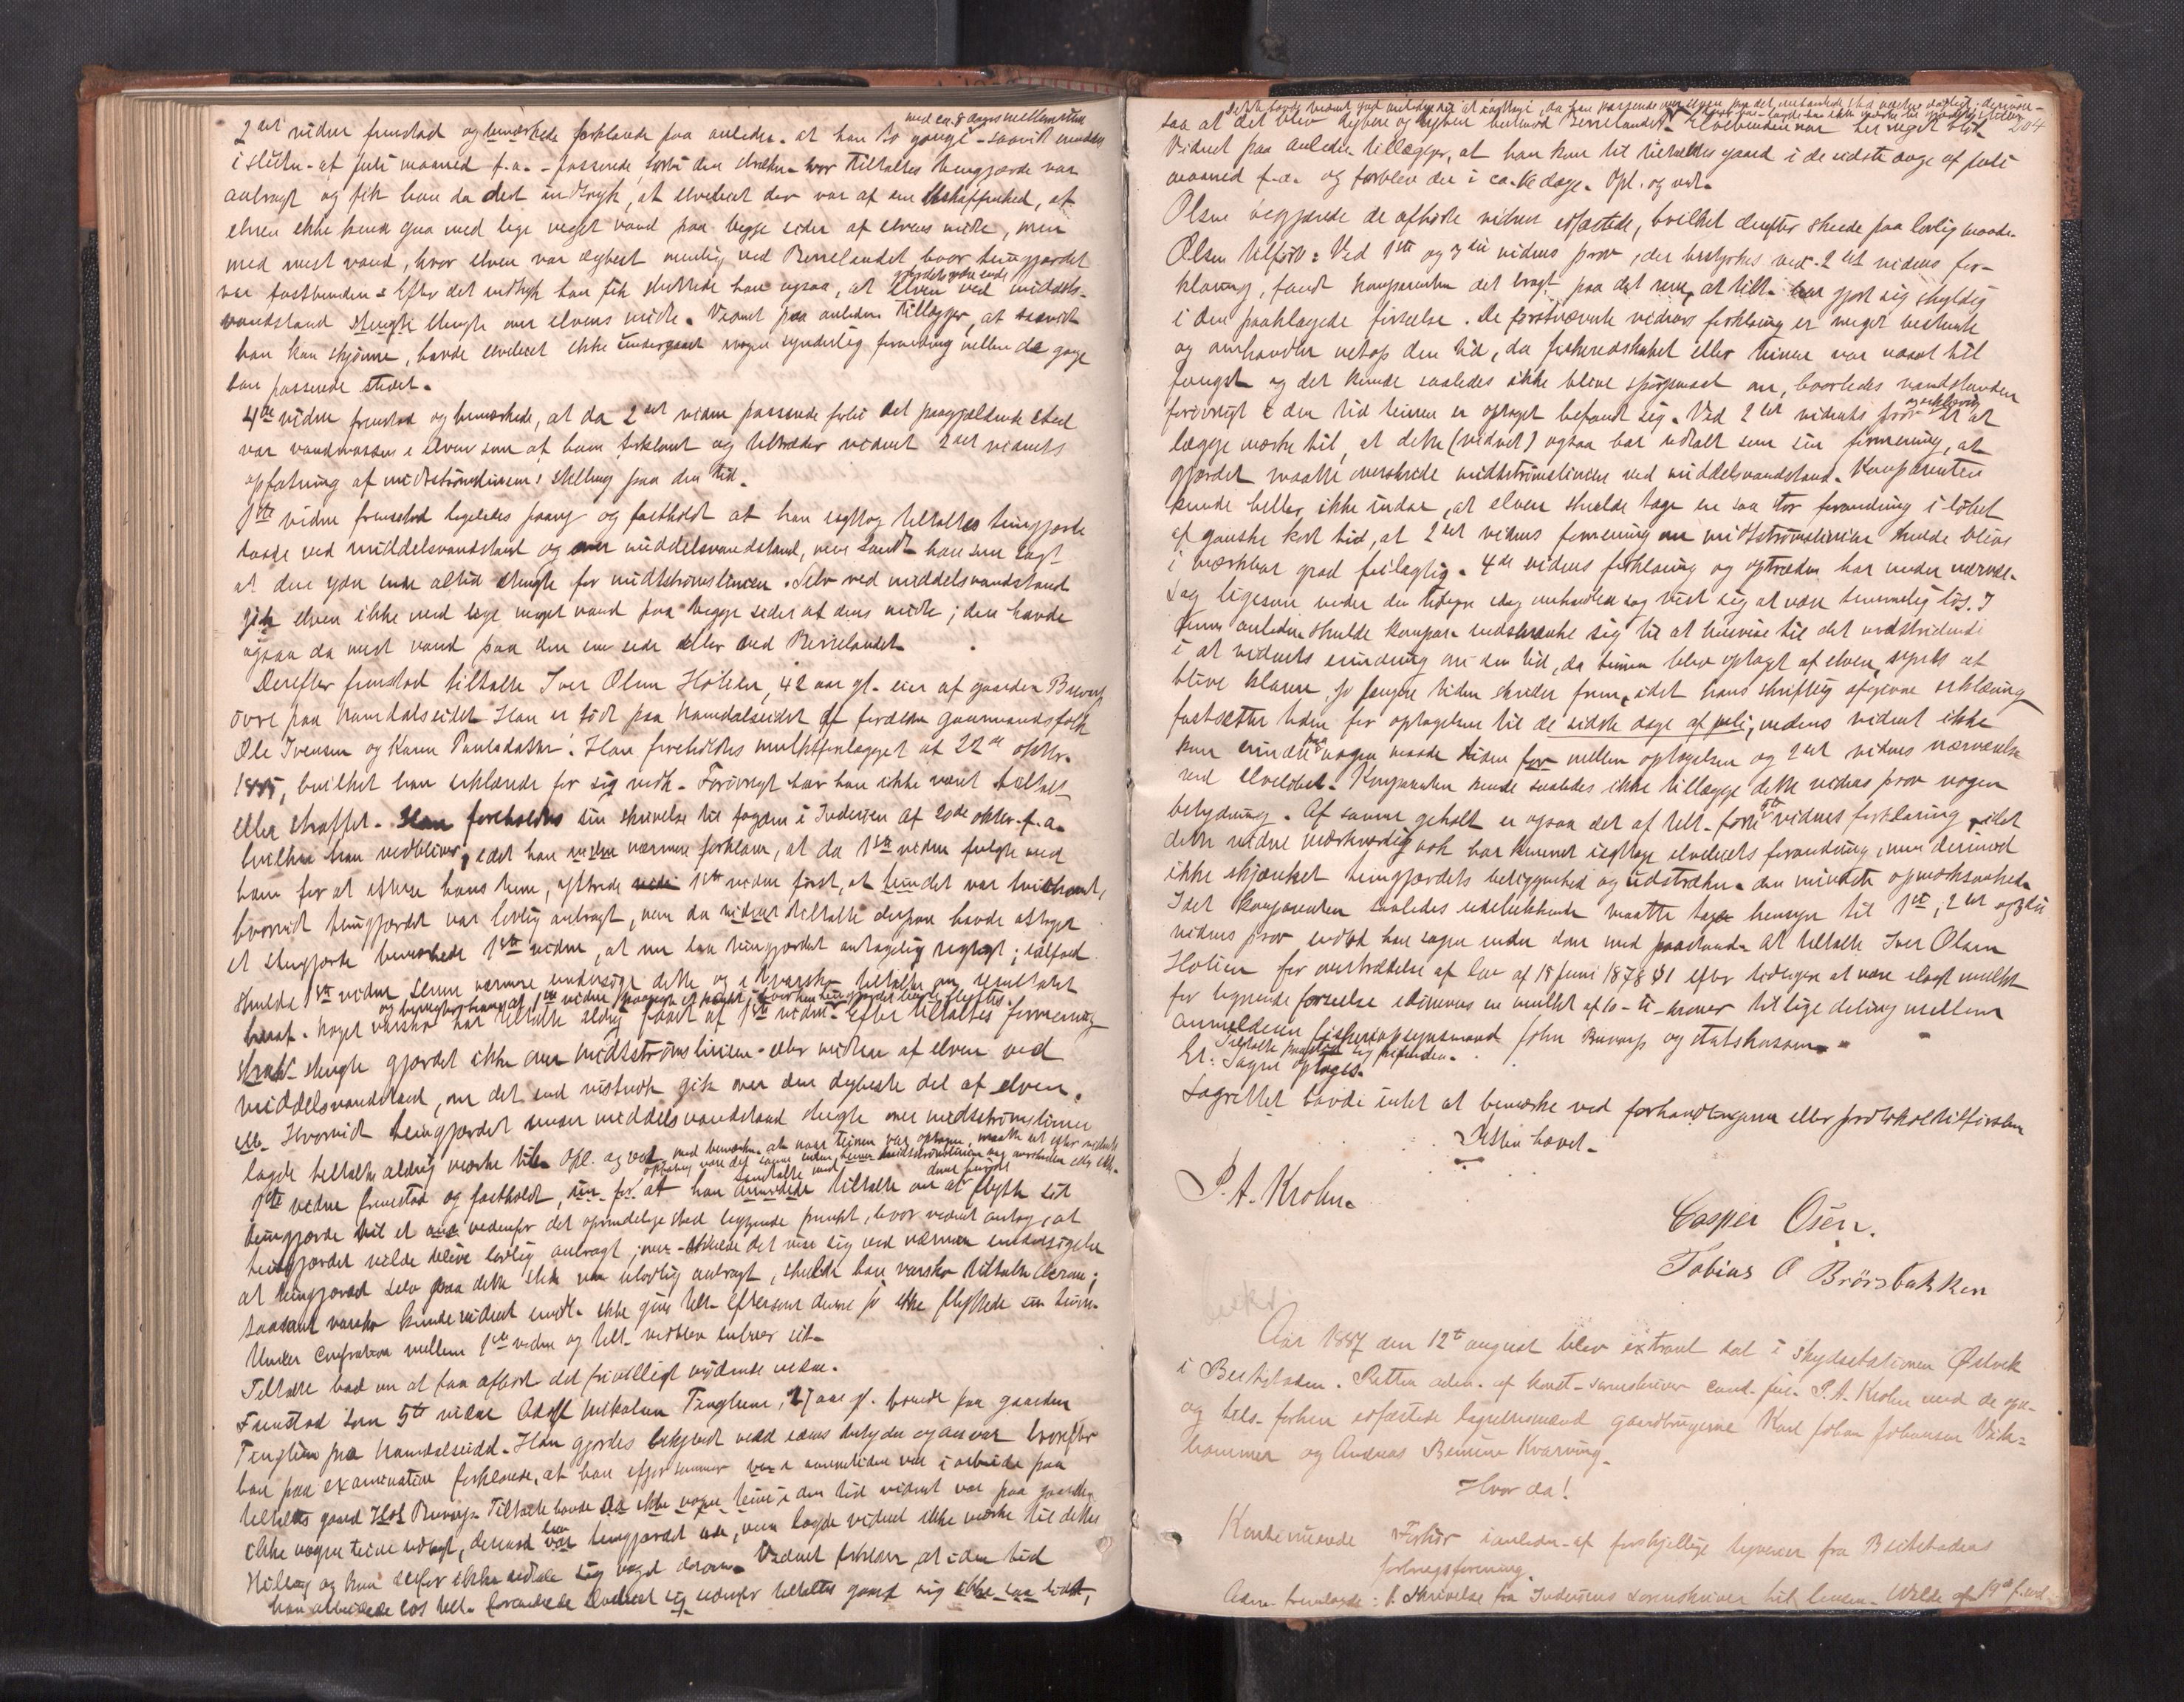 med ca. 8 dages mellemrum
2det vidne fremstod og bemærkede forklarede paa anledn. at han to gange - saavidt mindes
i slutn. af juli maaned f.a. - passerede forbi den strækn. hvor tiltaltes teingjærde var
anbragt og fik han da det indtryk, at elveleiet der var af en beskaffenhed, at
elven ikke kunde gaa med lige meget vand paa begge sider af elvens midte, men
med mest vand, hvor elven var dybest nemlig ved Berrelandet, hvor teingjærdet
var fastbunden. Efter det indtryk han fik sluttede han ogsaa, at gjærdets ydre ende ved middels-
vandstand stengte over elvens midte. Vidnet paa anledn. tillægger, at saavidt
han kan skjønne, havde elveleiet ikke undergaaet nogen synderlig forandring mellem de gange
han passerede stedet.
4de vidne fremstod og bemærkede, at da 2det vidne passerede forbi det paagjældende sted
var vandmassen i elven som af ham forklaret og tiltræder vidnet 2det vidnets
opfatning af midtstrømsliniens stilling paa den tid.
1ste vidne fremstod ligeledes paany og fastholdt at han iagttog tiltaltes teingjærde
baade ved middelsvandstand og over middelsvandstand, men fandt han som sagt
at den ydre ende altid stengte for midtstrømslinien. Selv ved middelsvandstand
gik elven ikke med lige meget vand paa begge sider af dens midte; den havde
ogsaa da mest vand paa den ene side eller ved Berrelandet.
Derefter fremstod tiltalte Iver Olsen Holien, 42 aar gl. eier af gaarden Buvarp
øvre paa Namdalseidet. Han er født paa Namdalseidet af forældre gaardmandsfolk
Ole Iversen og Karen Paulsdatter. Han foreholdtes mulktforlægget af 22de oktbr.
1885, hvilket han erklærede for sig vedk. Forøvrigt har han ikke været tiltalt
eller straffet. Han foreholdtes sin skrivelse til fogden i Inderøen af 20de oktbr. f.a.
hvilken han vedbliver, idet han nærmere forklarer, at da 1ste vidne fulgte med
ham for at eftersee hans teine, yttrede 1ste vidne først, at
hvorvidt teingjærdet var lovlig anbragt, men da tiltalte derpaa havde aftaget
et stengjærde bemærkede 1ste vidne, at nu laa teingjærdet antagelig rigtigt; ialfald
skulde 1ste vidne senere nærmere undersøge dette og varsko tiltalte om resultatet
heraf. Noget varsko har tiltalte aldrig faaet af 1ste vidne. Efter tiltaltes formening
stengte gjærdet ikke over midtstrømslinien eller midten af elven ved
middelsvandstand, om det end vistnok gik over den dybeste del af elven.
Hvorvidt teingjærdet under middelsvandstand stengte over midtstrømslinien
lagde tiltalte aldrig mærke til. Opl. og ved.
1ste vidne fremstod og fastholdt, at han anmodede tiltalte om at flytte sit
teingjærde til et nedenfor det oprindelige sted liggende punkt, hvor vidnet antog, at
teingjærdet vilde blive lovlig anbragt; men skulde det vise sig ved nærmere undersøgelse
at teingjærdet selv paa dette sted var ulovlig anbragt, skulde han varsko tiltalte derom;
saadant varsko kunde vidnet imidl. ikke give tilt. eftersom denne jo ikke flyttede sin teine.
Under confrontation mellem 1ste vidne og tilt. vedblev enhver sit.
Tiltalte bad om at faa afhørt det frivilligt mødende vidne.
Fremstod som 5te vidne Adolf Mikalsen Tinglum, 27 aar gl. boende paa gaarden
Tinglum paa Namdalseidet. Han gjordes bekjendt med edens betydn. og ansvar hvorefter
han paa examination forklarede, at han ifjor sommer var i aannetiden i arbeide paa
tiltaltes gaard Buvarp. Tiltalte havde da ikke nogen teine i den tid vidnet var paa gaarden
ikke nogen teine udlagt, derimod var teingjærdet ude, men lagde vidnet ikke mærke til dettes
stilling og kan derfor ikke udtale sig noget derom. Vidnet forklarer, at i den tid
han arbeidede hos tilt. forandrede elveleiet sig nedenfor tiltaltes gaard sig ikke saa lidet,
204
saa at det blev dybere og dybere henimod Berrelandet. Elvebunden var her meget blød
Vidnet paa anledn. tillægger, at han kom til tiltaltes gaard i de sidste dage af juli
maaned f.a. og forblev der i ca. dage. Opl. og vedt.
Olsen begjærede de afhørte vidner edfæstede, hvilket derefter skeede paa lovlig maade.
Olsen tilførte: Ved 1ste og 3die vidnes prov, der bestyrkes ved 2det vidnes for-
klaring, fandt komparenten det bragt paa det rene, at tilt. har gjort sig skyldig
i den paaklagede forseelse. De førstnævnte vidners forklaring er meget bestemte
og omhandler netop den tid, da fiskeredskabet eller teinen var udsat til
fangst og det kunde saaledes ikke blive spørgsmaal om, hvorledes vandstanden
forøvrigt i den tid teinen er optaget befandt sig. Ved 2det vidnets prov er at
lægge mærke til, at dette (vidnet) ogsaa har udtalt som sin formening, at
gjærdet maatte overskride midtstrømslinien ved middelsvandstand. Komparenten
kunde heller ikke indse, at elven skulde tage en saa stor forandring i løbet
af ganske kort tid, at 2det vidnes formening om midtstrømslinien skulde blive
i mærkbar grad feilagtig. 4de vidnes forklaring og optræden har under nærvær.
sag ligesom under den tidligere idag omhandlede sag vist sig at være temmelig løs. I
denne anledn. skulde kompar. indskrænke sig til at henvise til det modstridende
i at vidnets erindring om den tid, da teinen blev optaget af elven, synes at
blive klarere, jo længere tiden skrider frem, idet hans skriftlig afgivne erklæring
fastsætter tiden for optagelsen til de sidste dage af juli, medens vidnet ikke
kan erindre paa nogen maade tiden for mellem optagelsen og 2det vidnes nærværelse
ved elveløbet. Komparenten kunde saaledes ikke tillægge dette vidnes prov nogen
betydning. Af samme gehalt er ogsaa det af tilt. førte 5te vidnes forklaring, idet
dette vidne mærkværdig nok har kunnet iagttage elveleiets forandring, men derimod
ikke skjænket teingjærdets beliggenhed og udstrækn. den mindste opmærksomhed.
Idet komparenten saaledes udelukkende maatte tage hensyn til 1ste, 2det og 3die
vidnes prov, indlod han sagen under dom med paastand: At tiltalte Iver Olsen
Holien for overtrædelse af lov af 18 Juni 1878 § 1 efter tidligere at være ilagt mulkt
for lignende forseelse idømmes en mulkt af 10 - ti - kroner til lige deling mellem
anmelderen fiskeriopsynsmand John Buvarp og statskassen.
Tiltalte paastod sig frifunden.
Er: Sagen optoges.
Lagrettet havde intet at bemærke ved forhandlingerne eller protokoltilførslen
Retten hævet.
P. A. Krohn.
Casper Osen.
Tobias O Brørsbakken
Aar 1887 den 12te august blev extraret sat i skydsstationen Østvik
i Beitstaden. Retten adm. af konst. sorenskriver cand. jur. P. A. Krohn med de opn.
og tils. forhen edfæstede lagrettesmænd gaardbrugerne Karl Johan Johansen Vik=
hammer og Andreas Kvarving.
Hvor da!
Kontinuerende Forhør i anledn. af forskjellige tyverier fra Beitstadens
forbrugsforening.
Adm. fremlagde: 1. Skrivelse fra Inderøens sorenskriver til lensm. Wilde af 19de f. md.